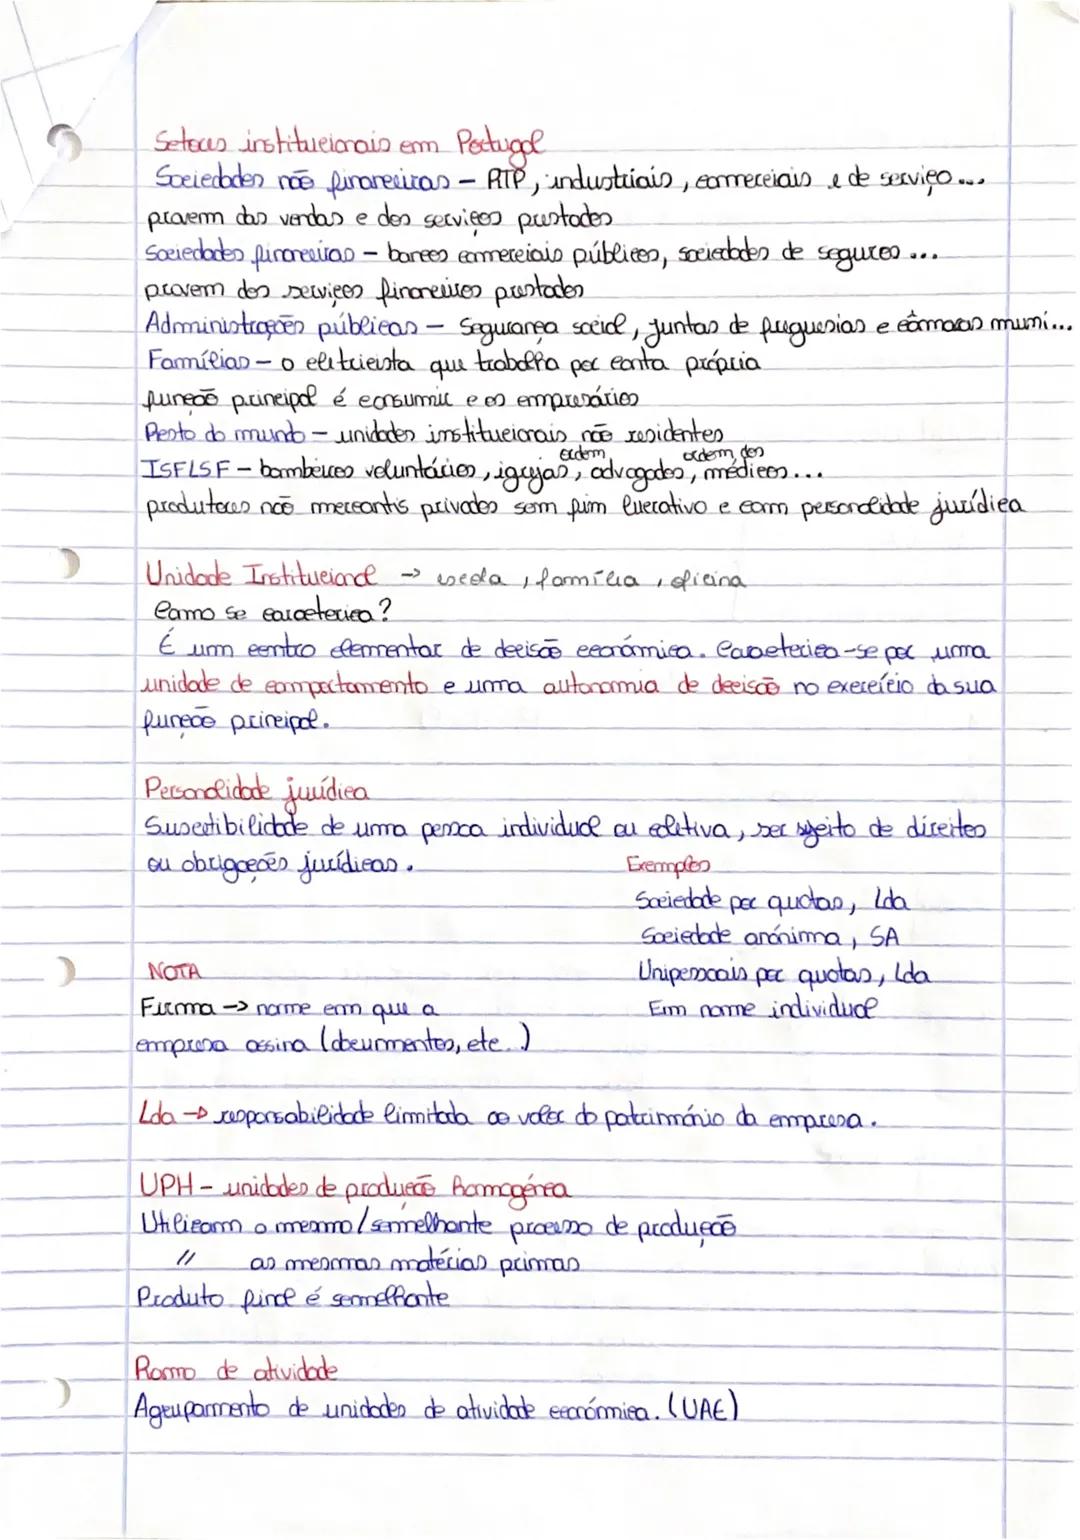 Setores institucionais em Portugal
Sociedades não financeiras – RTP, industriais, comerciais e de serviço...
provem das vendas e dos serviços prestados
Sociedades financeiras – bancos comerciais públicos, sociedades de seguros ...
provem dos serviços financeiros prestados
Administrações públicas – Segurança social, juntas de freguesias e câmaras muni...
Famílias – o eletricista que trabalha por conta própria
função principal é consumir e os empresários
Resto do mundo – unidades institucionais não residentes
ordem ordem dos
ISFLSF – bombeiros voluntários, igrejas, advogados, médicos...
produtores não mercantis privados sem fim lucrativo e com personalidade jurídica
Unidade Institucional → escola, família, oficina
Como se caracteriza?
É um centro elementar de decisão económica. Caracteriza-se por uma
unidade de comportamento e uma autonomia de decisão no exercício da sua
função principal.
Personalidade jurídica
Suscetibilidade de uma pessoa individual ou coletiva, ser sujeito de direitos
ou obrigações jurídicas.
Exemplos
Sociedade por quotas, Lda
Sociedade anónima, SA
NOTA
Unipessoais por quotas, Lda
Firma → nome em que a
Em nome individual
empresa assina (documentos, etc.)
Lda → responsabilidade limitada ao valor do património da empresa.
UPH – unidades de produção homogénea
Utilizam o mesmo/semelhante processo de produção
// as mesmas matérias primas
Produto final é semelhante
Ramo de atividade
Agrupamento de unidades de atividade económica. (UAE)